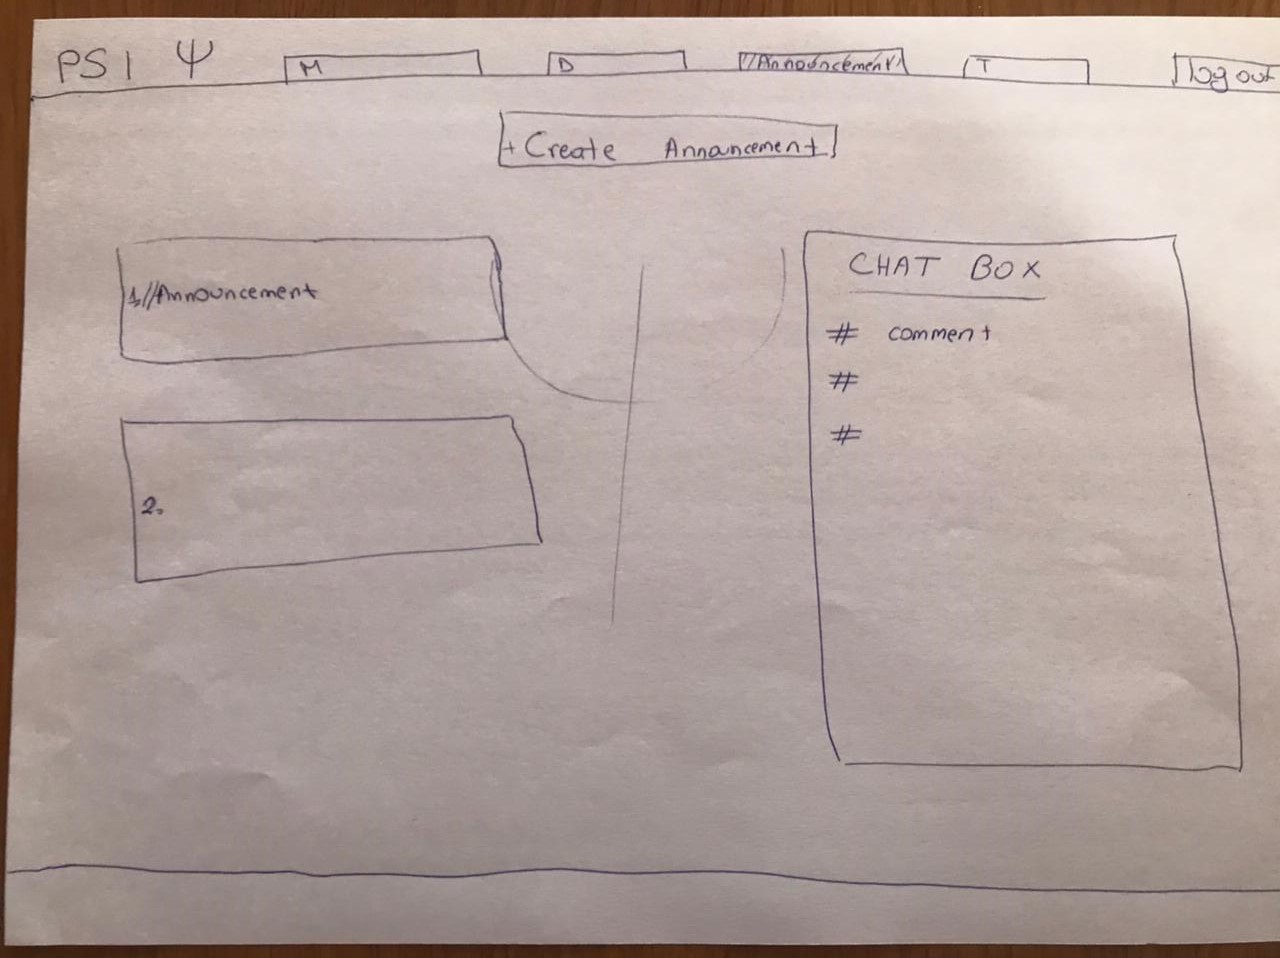 PSI Ψ M D //Announcement// T log out
+ Create Annancement
1.//Announcement
2.
CHAT BOX
# comment
#
#